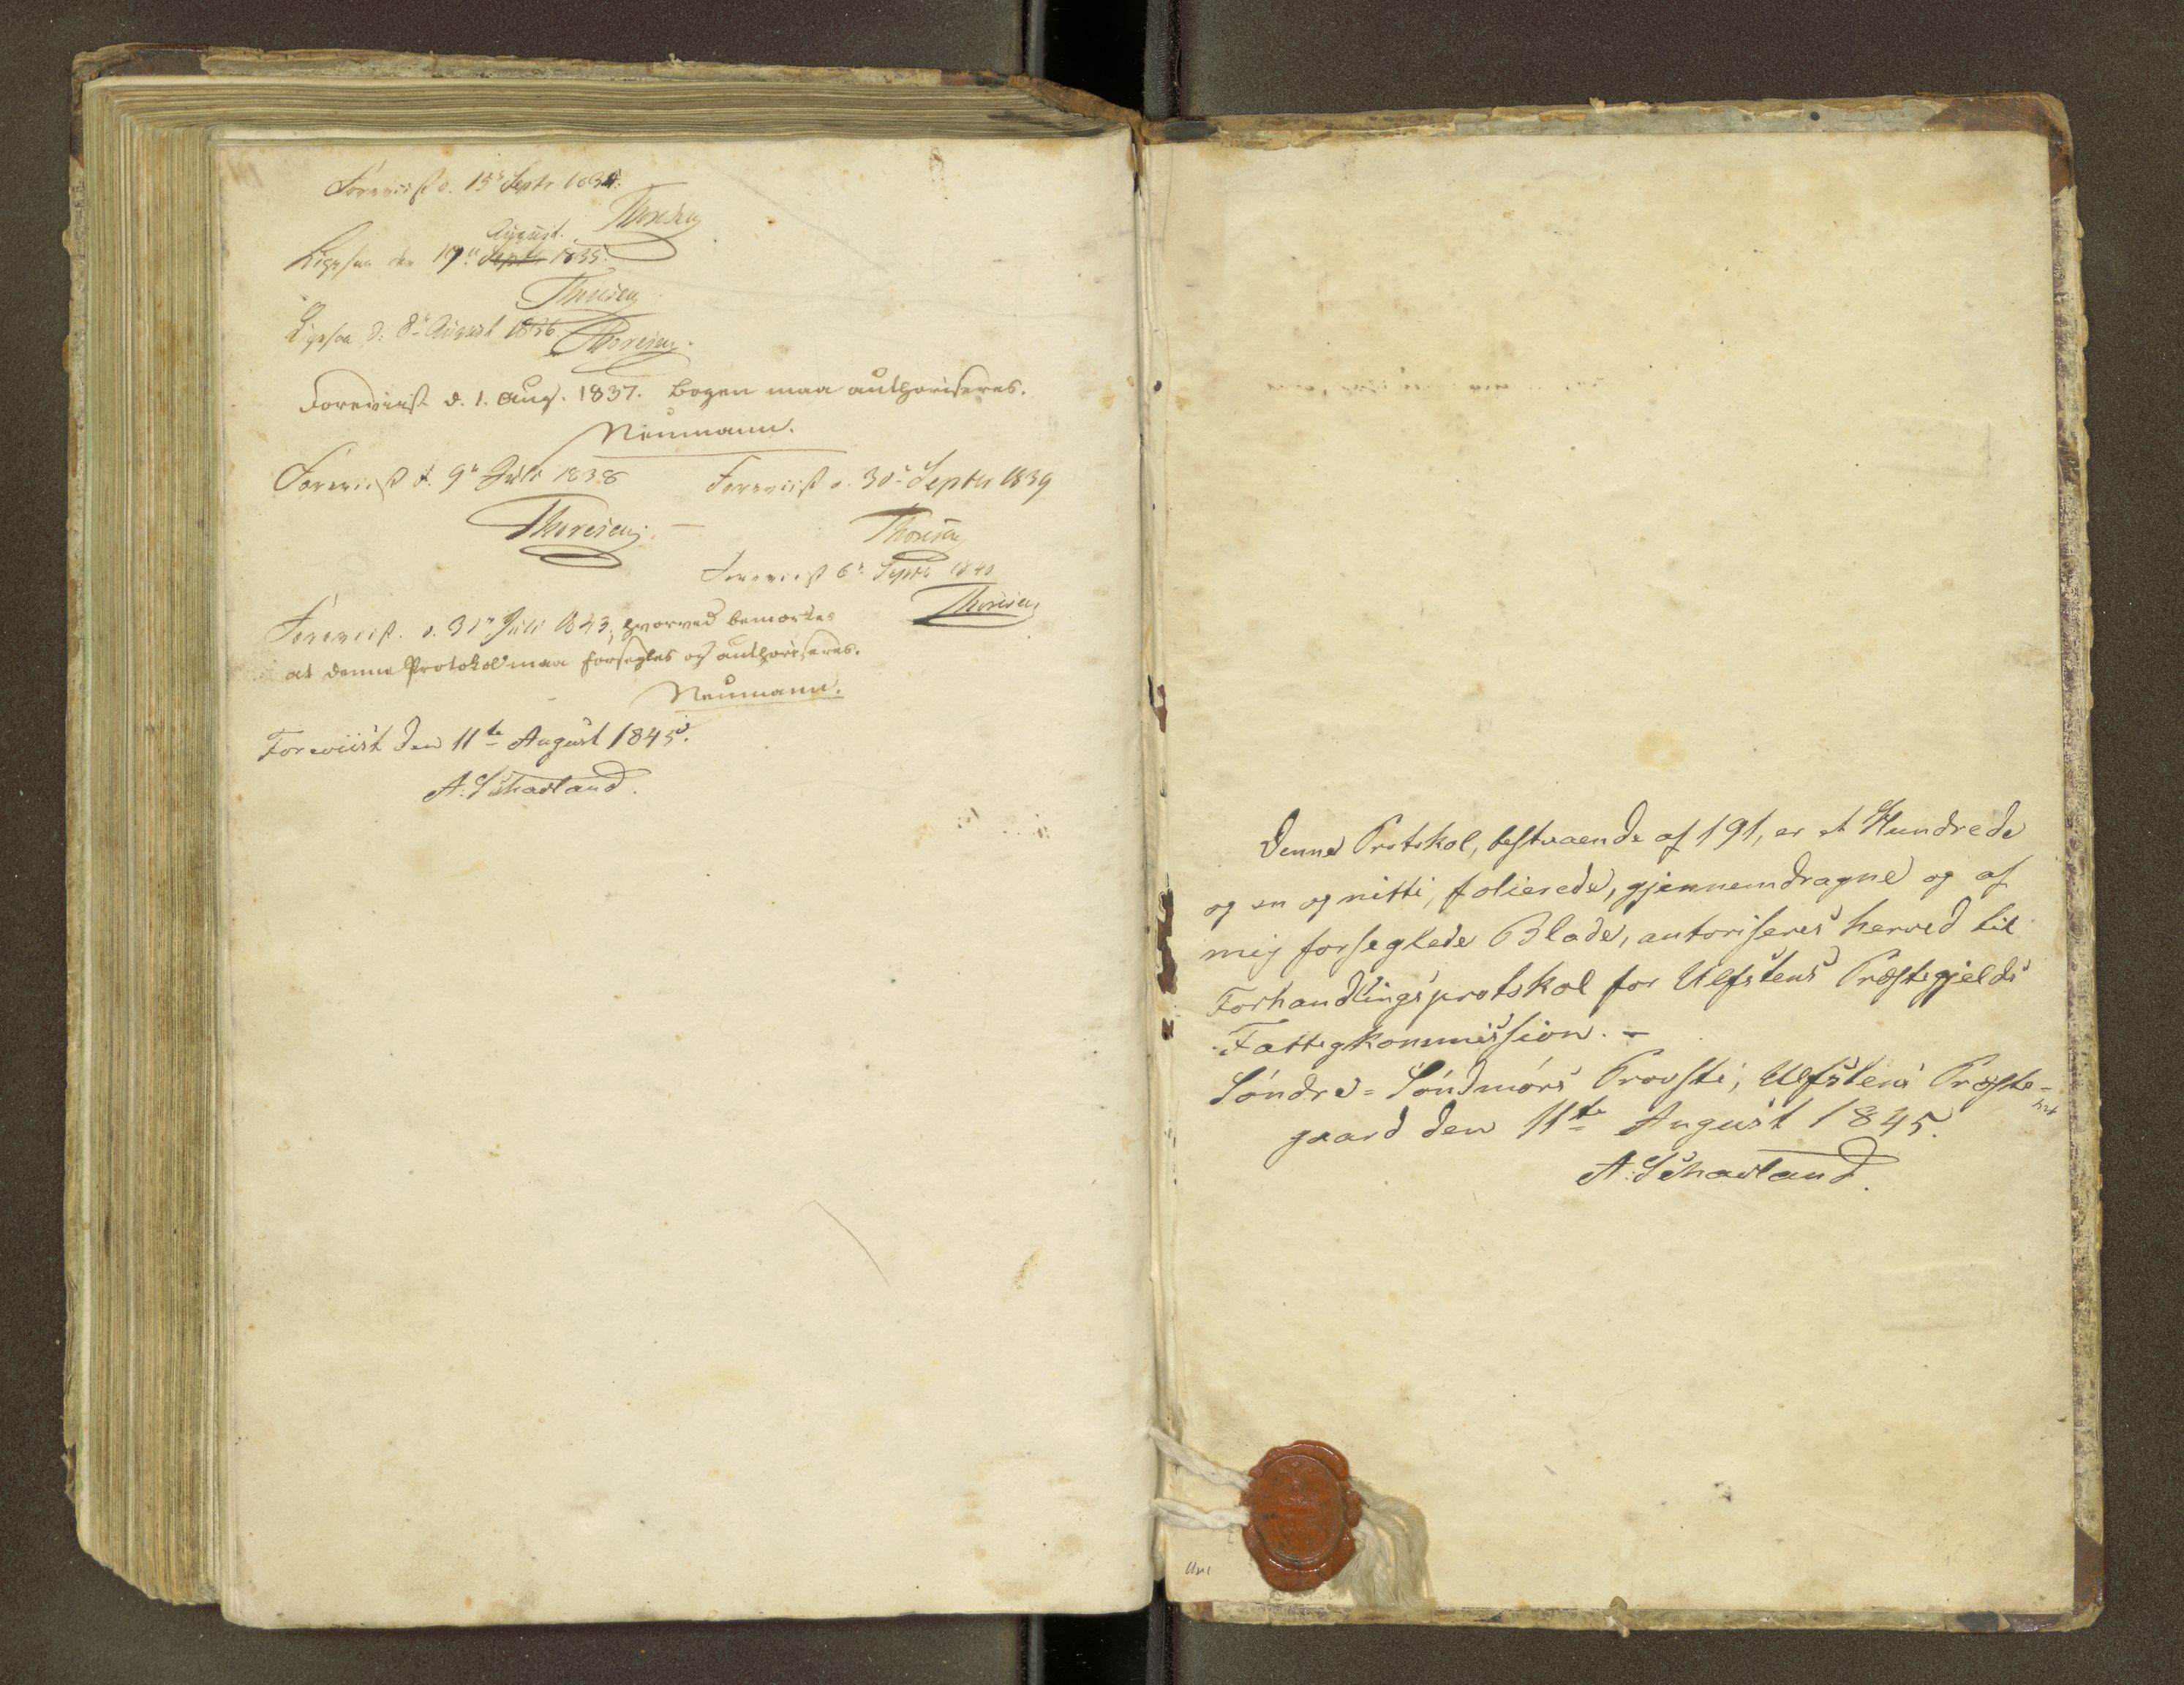 Foreviist d. 15de Septr 1834.
Thoresen
August.
Ligesaa den 19de Septr 1835.
Thoresen
Ligesaa d. 8de August 1836. Thoresen.
Foreviist d. 1. Aug. 1837. Bogen maa authoriseres.
Neumann.
Foreviist d. 9de Juli 1838
Thoresen. —
Foreviist d. 30te Septbr 1839
Thoresen
Foreviist 6te Septbr 1840
Thoresen
Foreviist. d. 31te Juli 1843, hvorved bemærkes
at denne Protokol maa forsegles og authoriseres.
Neumann.
Foreviist den 11te August 1845.
A. Schavland.
Denne Protokol, bestaaende af 191, er et Hundrede
og en og nitti, folierede, gjennemdragne og af
mig forseglede Blade, autoriseres herved til
Forhandlingsprotokol for Ulfstens Præstegjelds
Fattigkommission. —
Söndre=Söndmörs Provsti, Ulfstens Præste-
gaard den 11te August 1845.
A. Schavland.